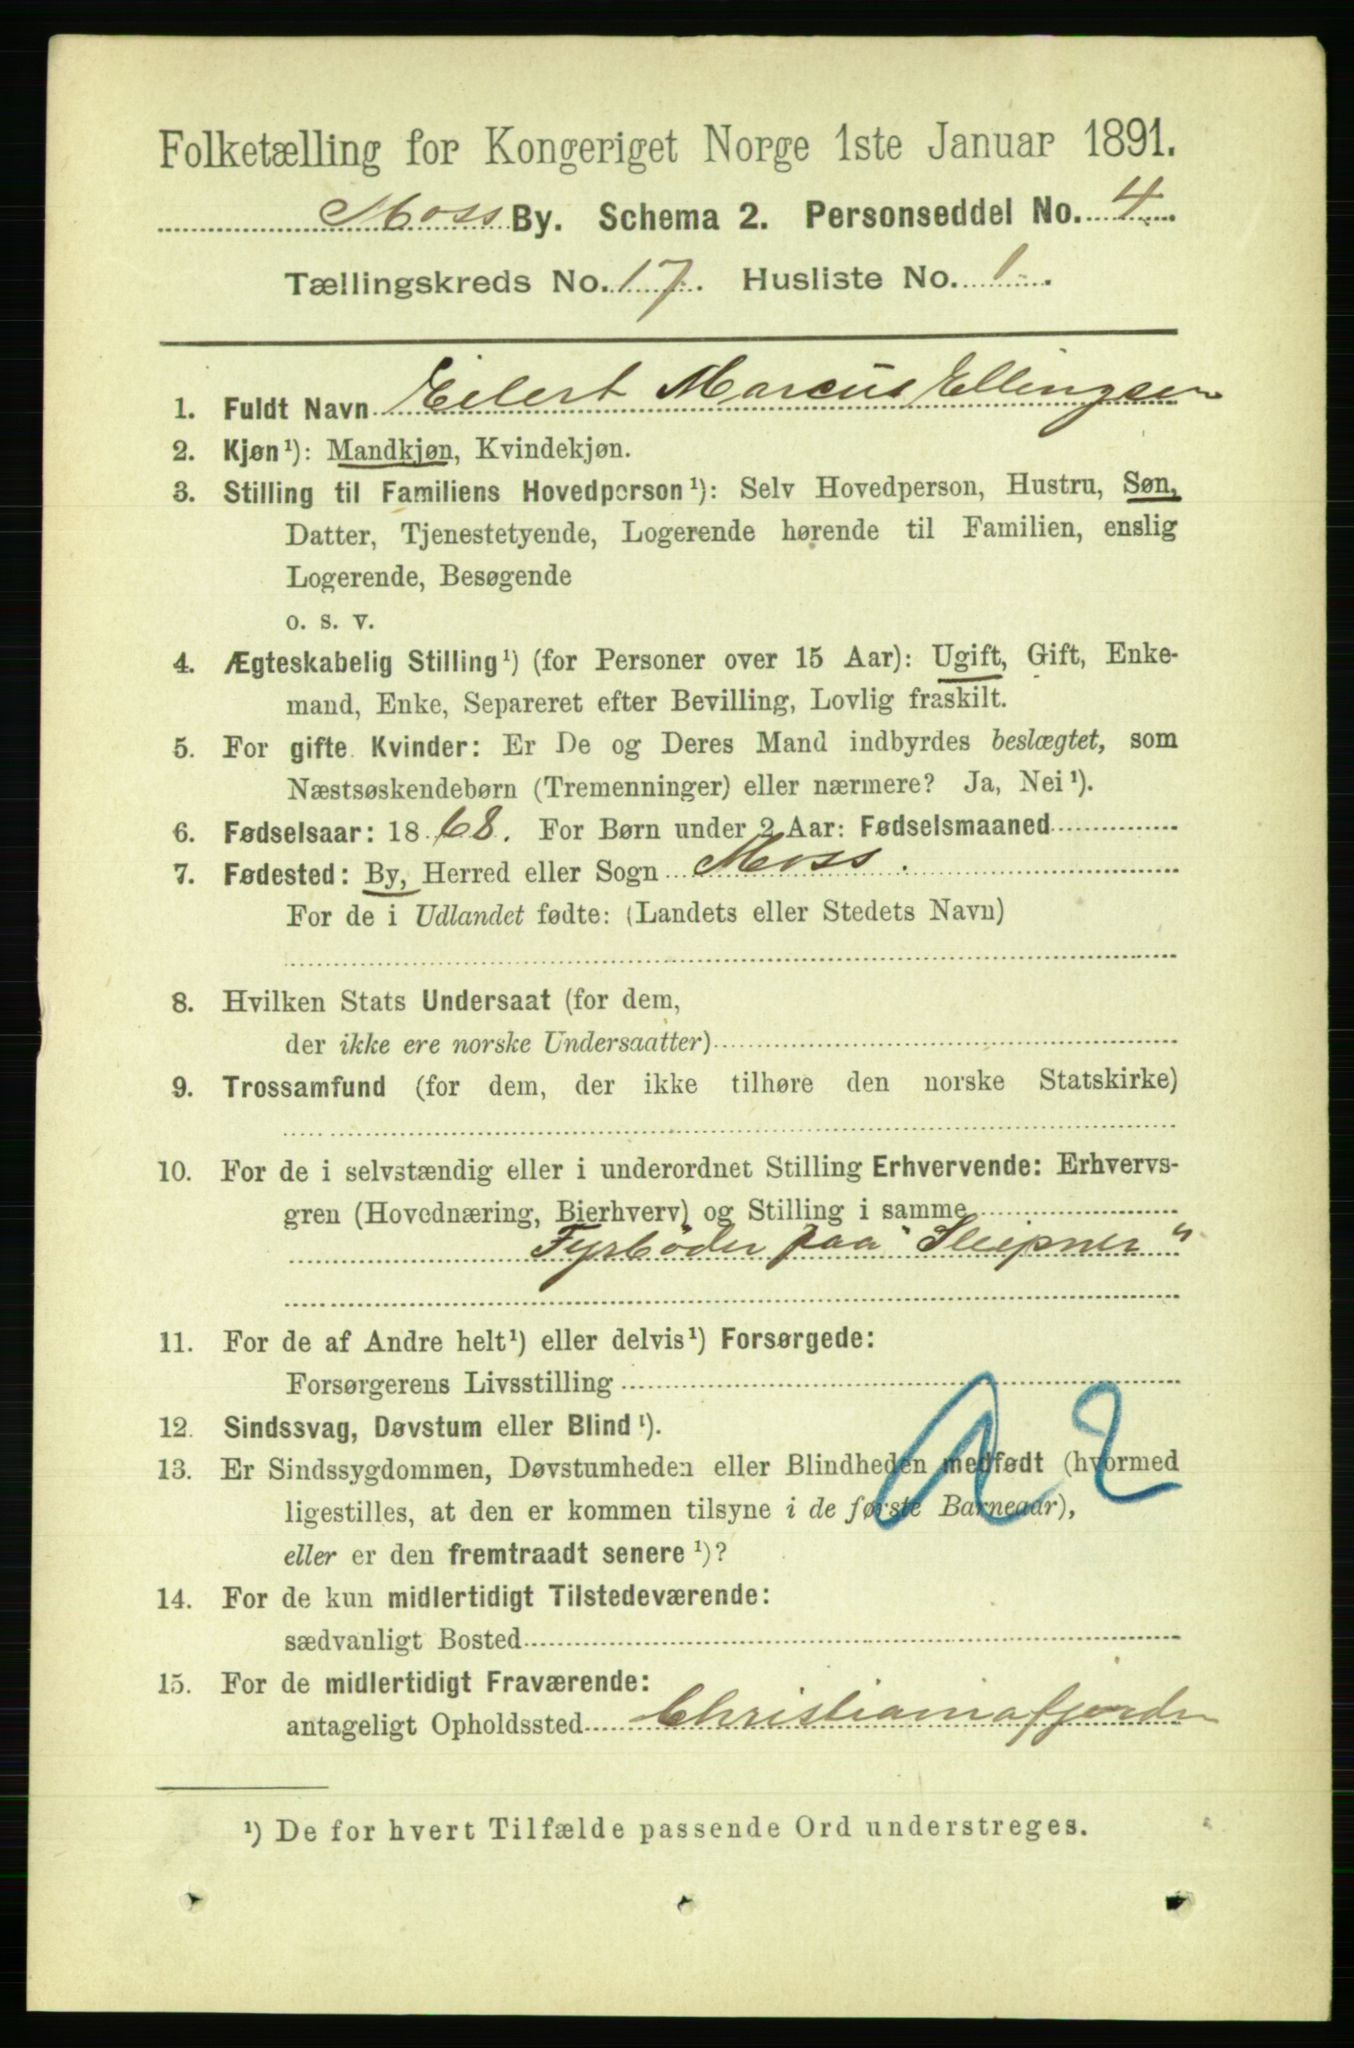 Folketælling for Kongeriget Norge 1ste Januar 1891.
Moss By. Schema 2. Personseddel No. 4
Tællingskreds No. 17. Husliste No. 1.
1. Fuldt Navn Eilert Marcus Ellingsen
2. Kjøn¹): Mandkjøn, Kvindekjøn.
3. Stilling til Familiens Hovedperson¹): Selv Hovedperson, Hustru, Søn,
Datter, Tjenestetyende, Logerende hørende til Familien, enslig
Logerende, Besøgende
o. s. v.
4. Ægteskabelig Stilling¹) (for Personer over 15 Aar): Ugift, Gift, Enke-
mand, Enke, Separeret efter Bevilling, Lovlig fraskilt.
5. For gifte Kvinder: Er De og Deres Mand indbyrdes beslægtet, som
Næstsøskendebørn (Tremenninger) eller nærmere? Ja, Nei¹).
6. Fødselsaar: 1868. For Børn under 2 Aar: Fødselsmaaned
7. Fødested: By, Herred eller Sogn Moss.
For de i Udlandet fødte: (Landets eller Stedets Navn)
8. Hvilken Stats Undersaat (for dem,
der ikke ere norske Undersaatter)
9. Trossamfund (for dem, der ikke tilhøre den norske Statskirke)
10. For de i selvstændig eller i underordnet Stilling Erhvervende: Erhvervs-
gren (Hovednæring, Bierhverv) og Stilling i samme
Fyrbøder paa "Sleipner"
11. For de af Andre helt¹) eller delvis¹) Forsørgede:
Forsørgerens Livsstilling
12. Sindssvag, Døvstum eller Blind¹).
13. Er Sindssygdommen, Døvstumheden eller Blindheden medfødt (hvormed
ligestilles, at den er kommen tilsyne i de første Barneaar),
eller er den fremtraadt senere¹)?
14. For de kun midlertidigt Tilstedeværende:
sædvanligt Bosted
15. For de midlertidigt Fraværende:
antageligt Opholdssted Christianiafjorden
¹) De for hvert Tilfælde passende Ord understreges.